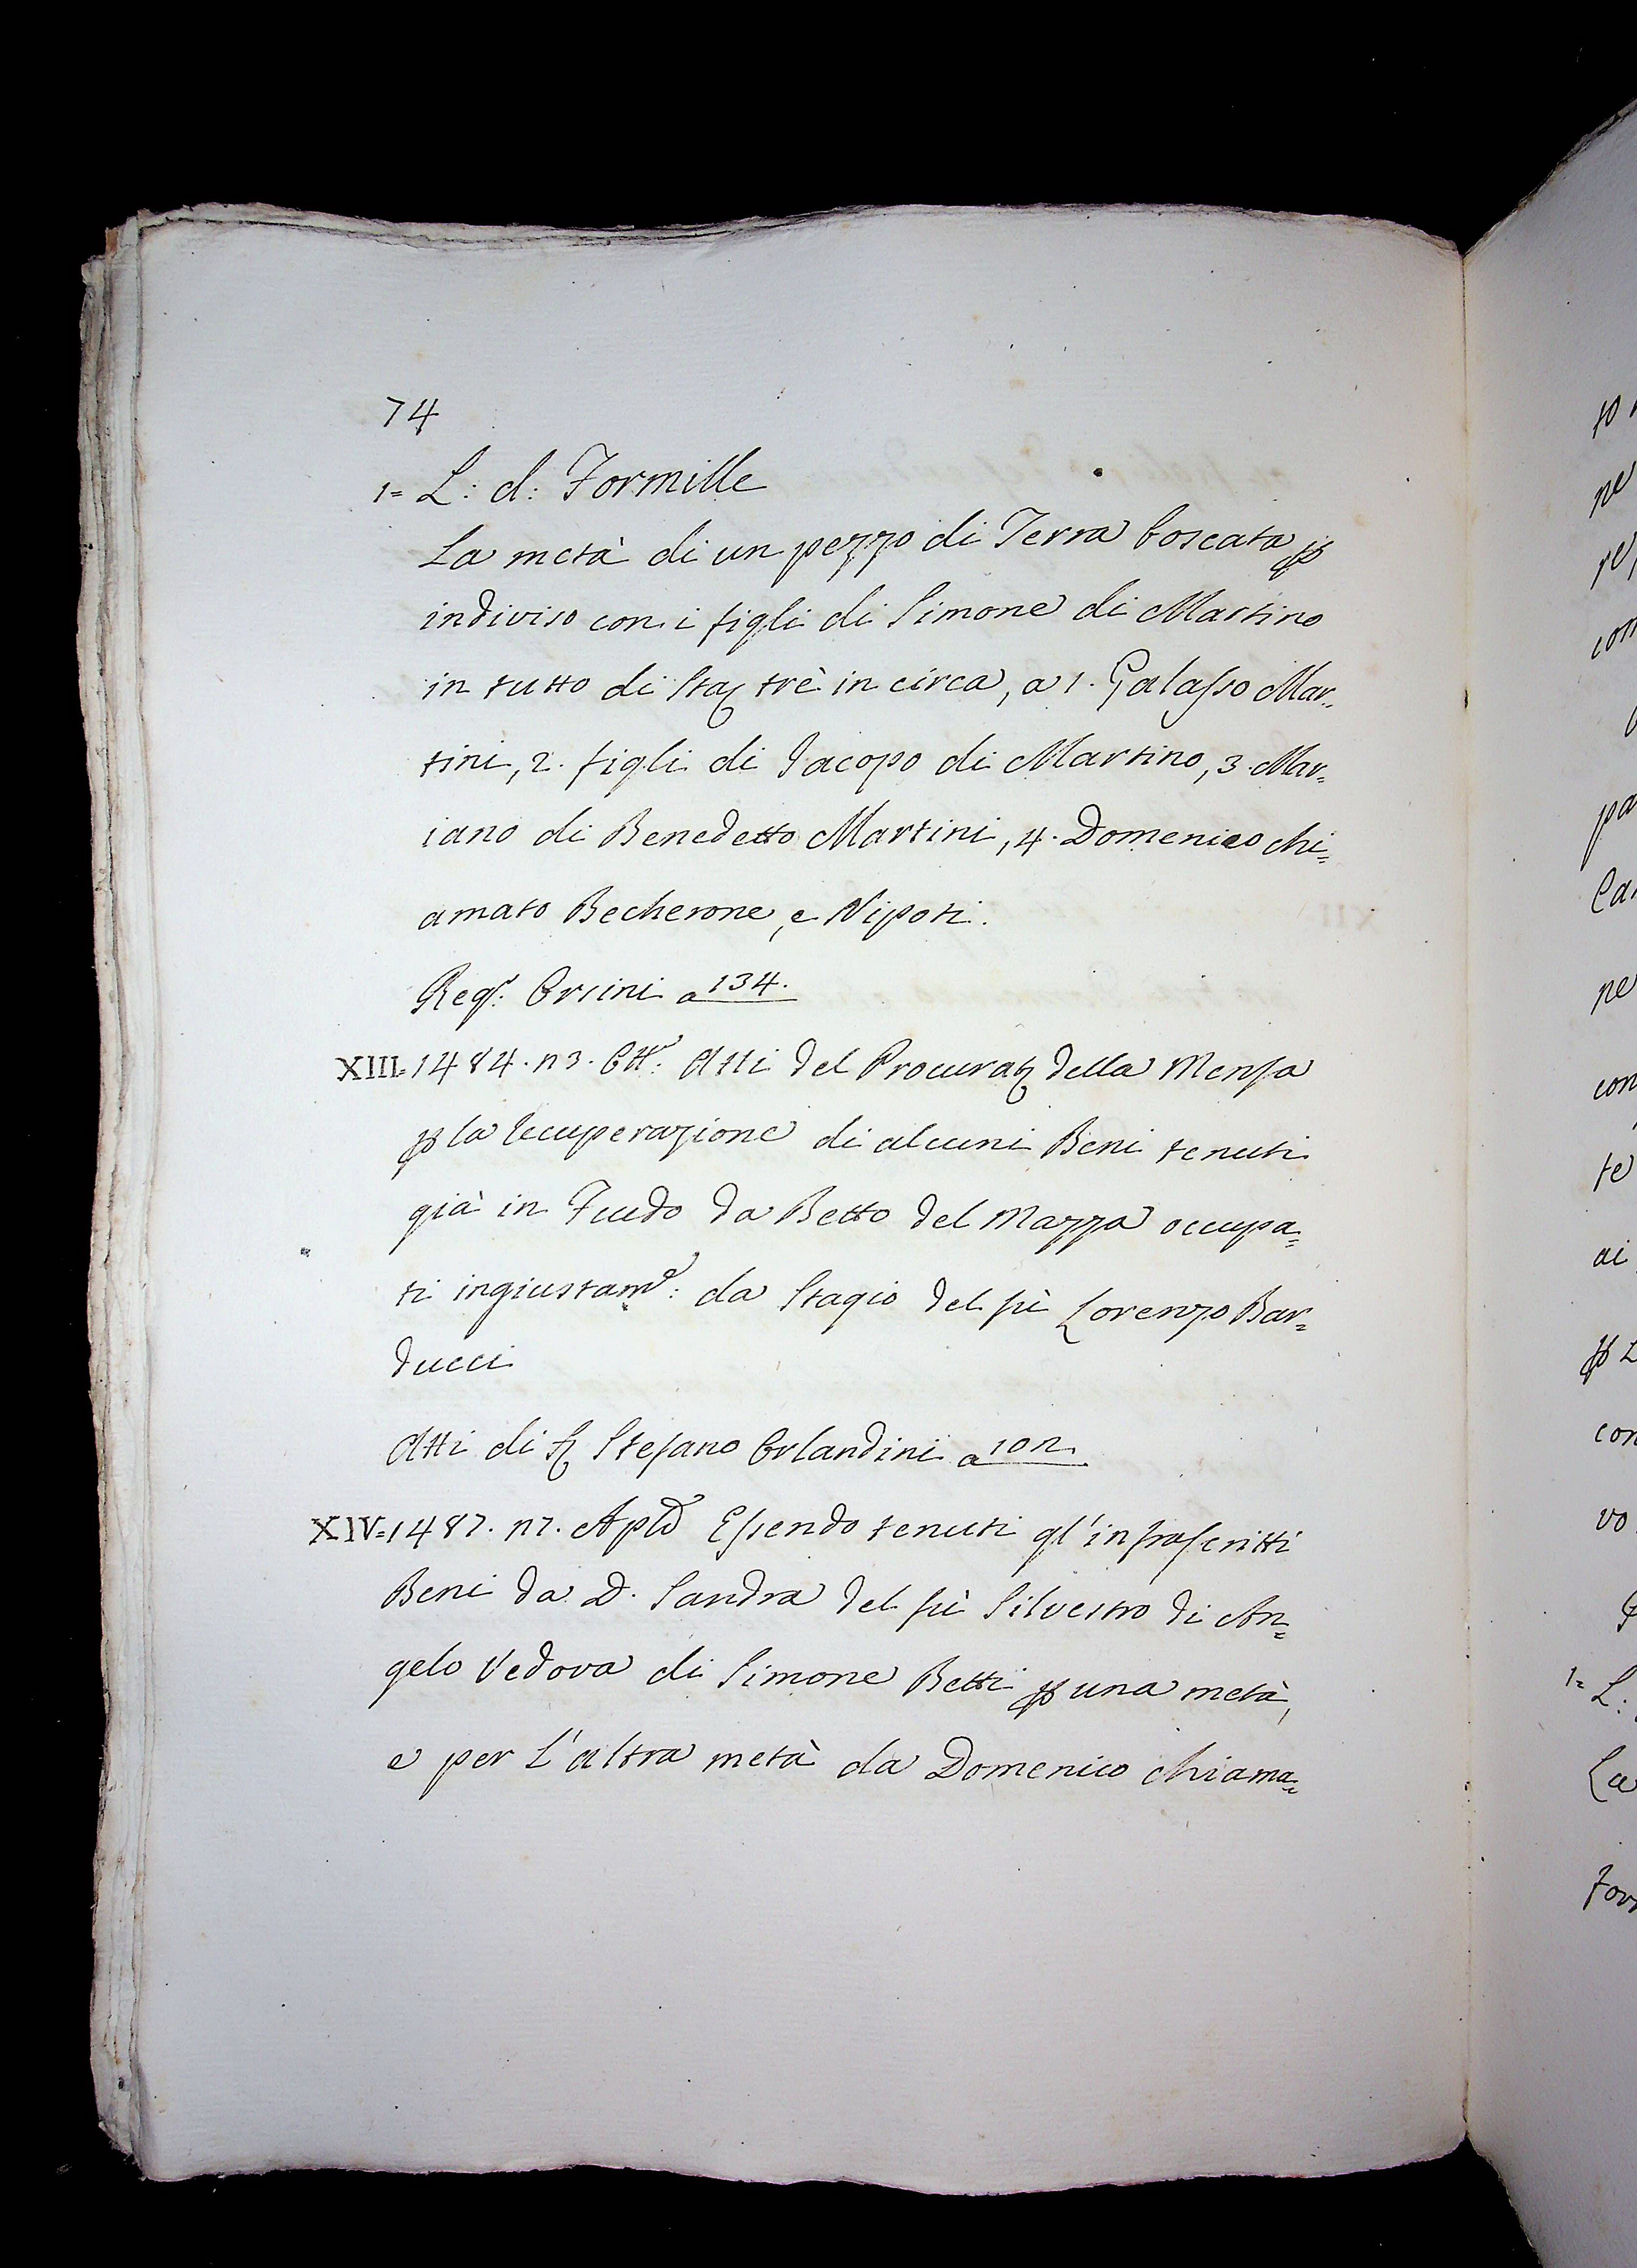 74
1= L: d: Formille
La metà di un pezzo di Terra boscata ꝑ
indiviso con i figli di Simone di Martino
in tutto di Sta; trè in circa, a 1. Galasso Mar=
tini, 2. figli di Jacopo di Martino, 3. Mar=
iano di Benedetto Martini, 4. Domenico chi=
amato Becherone, e Nipoti.
Regr: Orsini a 134.
XIII= 1484. n3. Ottr: Atti del Procurat della Mensa
ꝑ la recuperazione di alcuni Beni tenuti
già in Feudo da Betto del Mazza occupa=
ti ingiustamte: da Stagio del fù Lorenzo Bar=
ducci
Atti di Sr Stefano Orlandini a 102
XIV= 1487. n7. Aple Essendo tenuti gl'infrascritti
Beni da D. Sandra del fù Silvestro di An=
gelo Vedova di Simone Betti ꝑ una metà,
e per l'altra metà da Domenico chiama=
to
pe
con
pa
Ca
pe
con
te
ai
ꝑ L
con
vo
1= L:
La
For